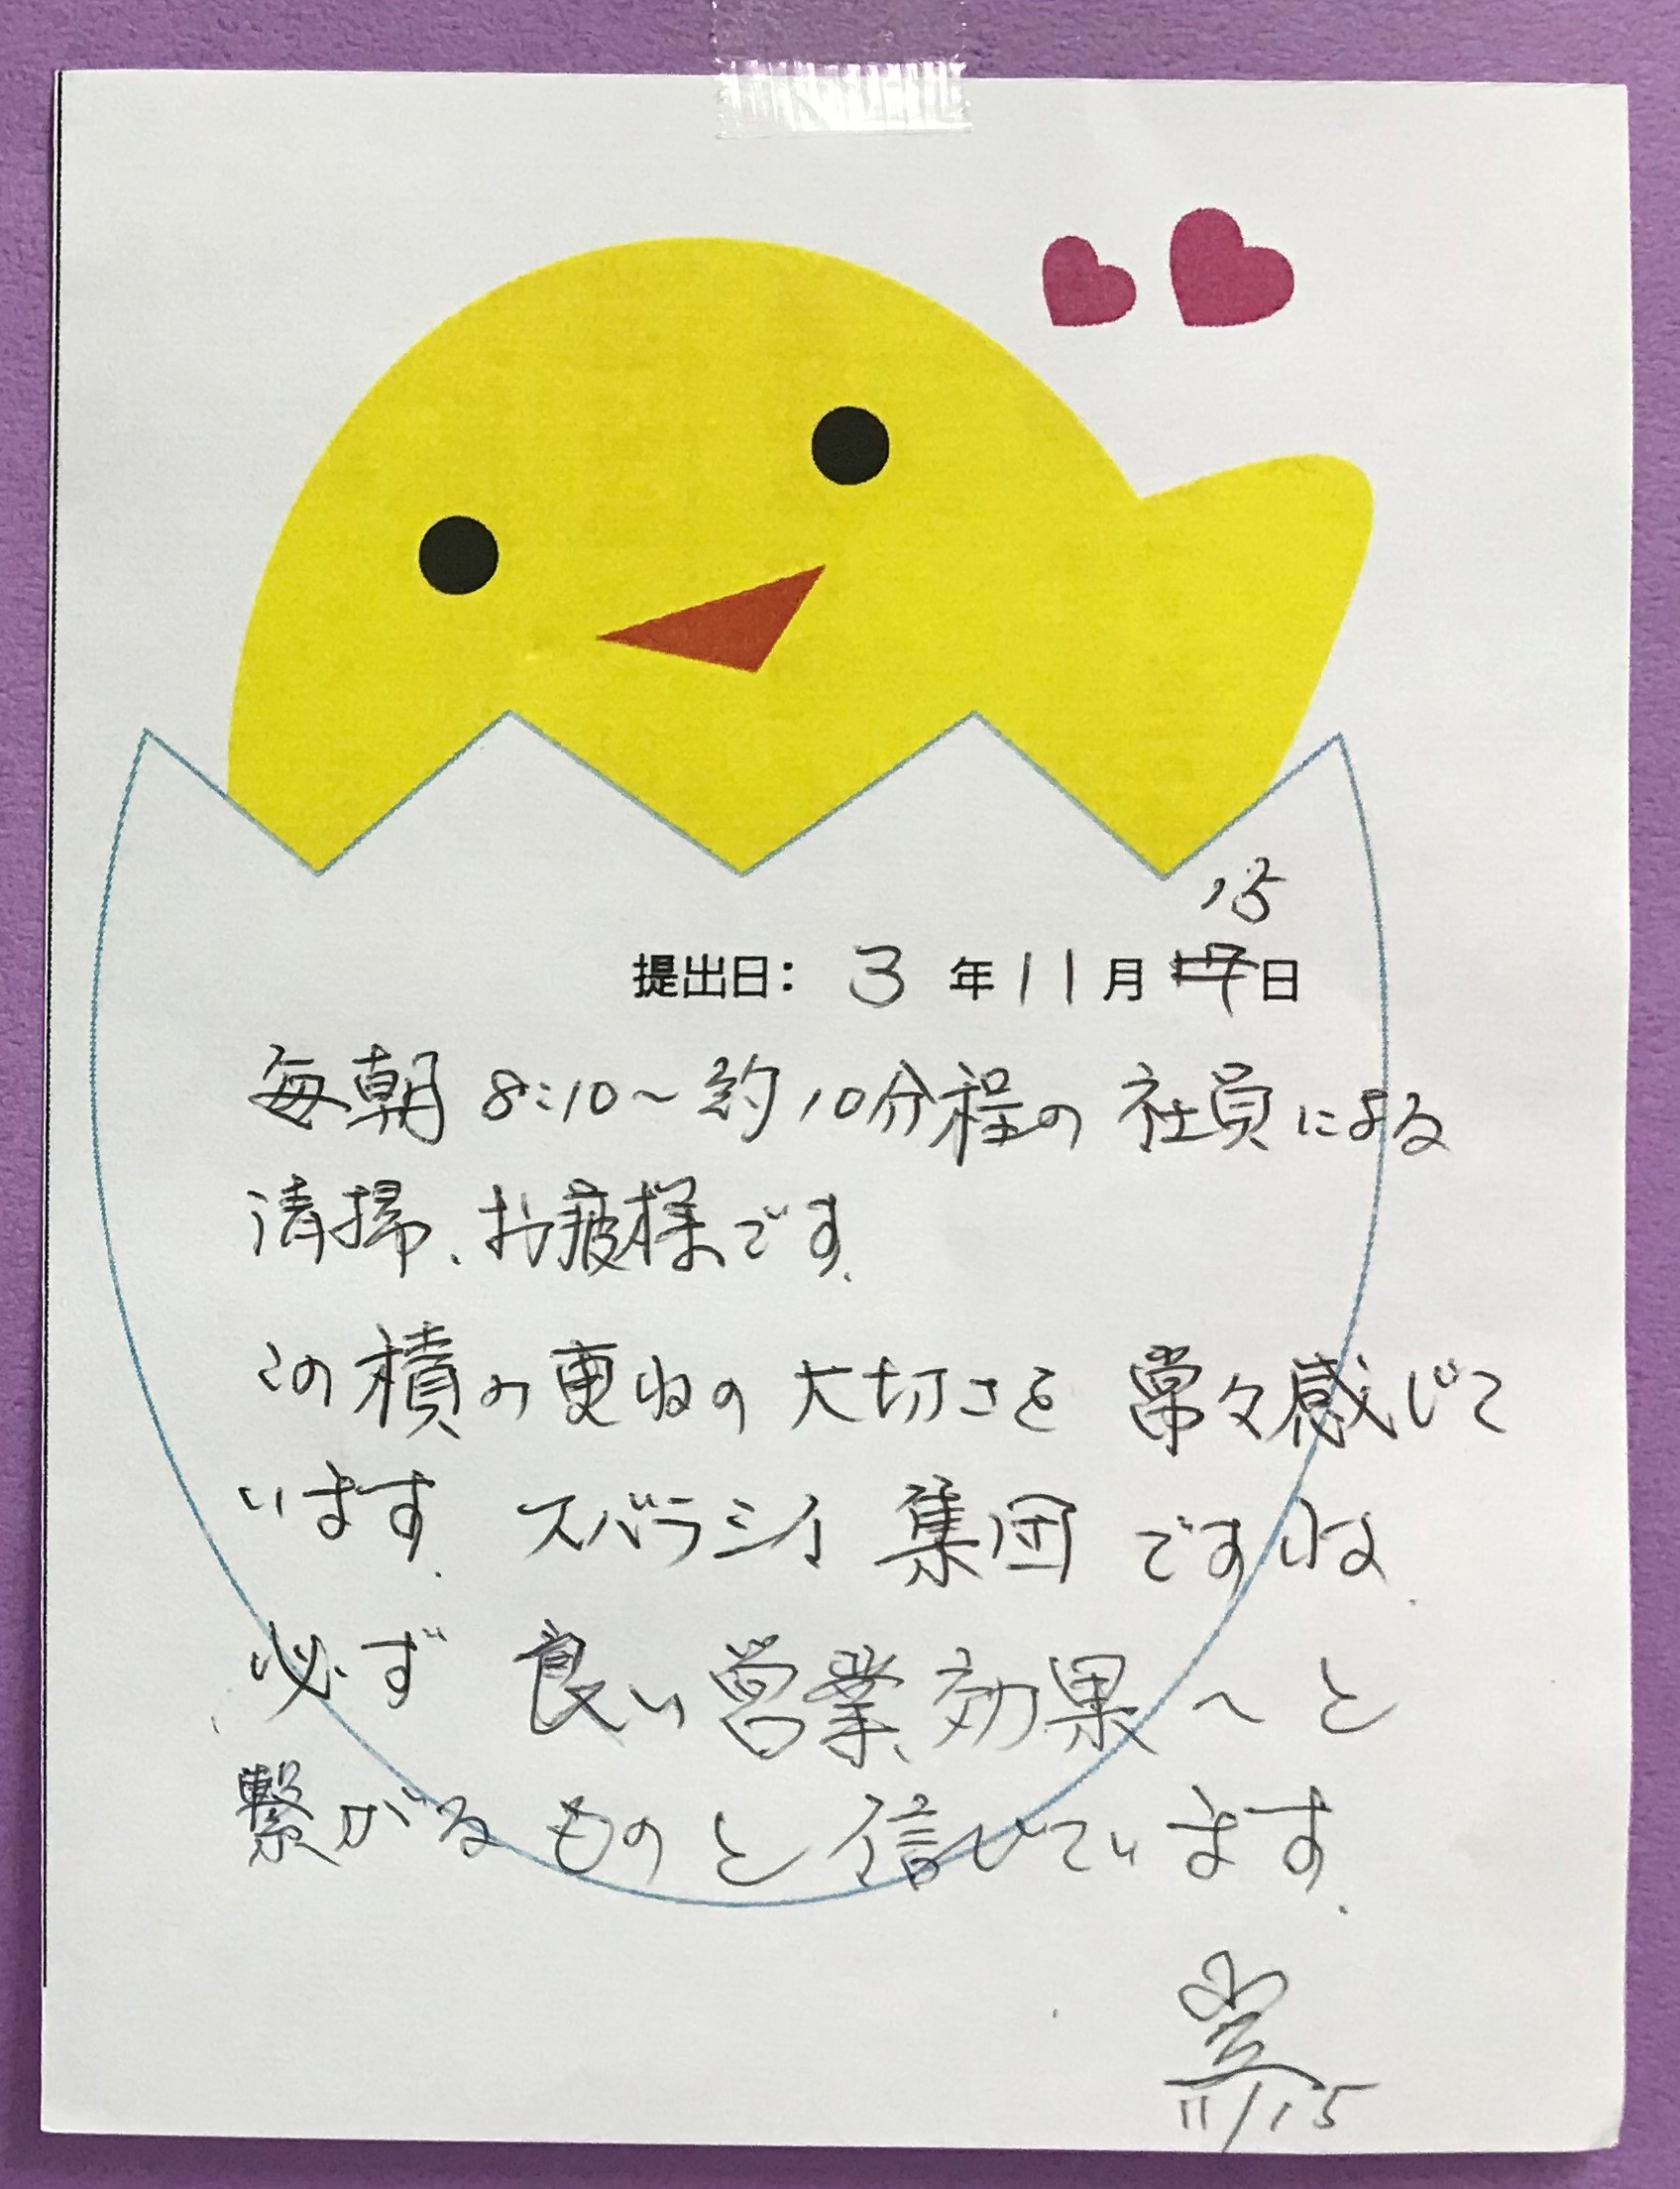 15
提出日: 3 年 11 月 17 日
毎朝 8:10〜約10分程の 社員による
清掃、お疲様です。
この積み重ねの 大切さを 常々感じて
います。 スバラシイ 集団 ですね。
必ず 良い営業効果へと
繋がるものと信じています。
11/15